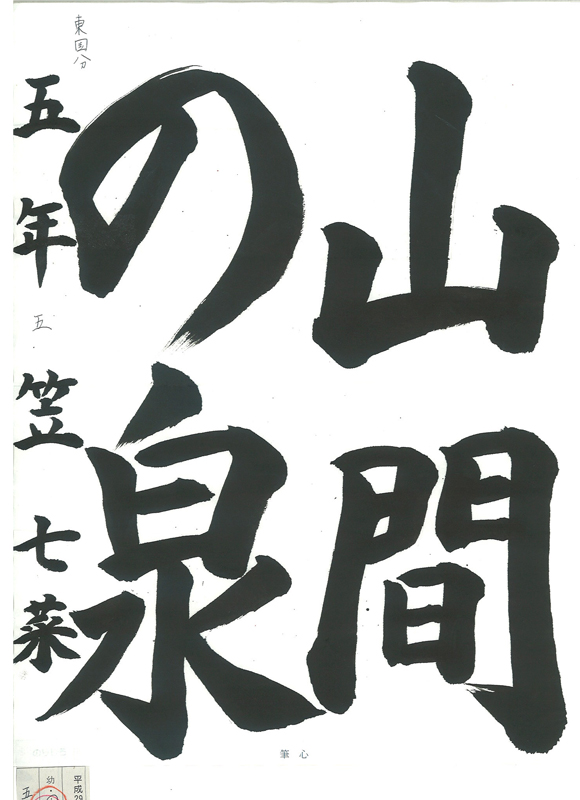 山間
の泉
東国分
五年 笠 七菜
五
筆心
平成29
幼・
五